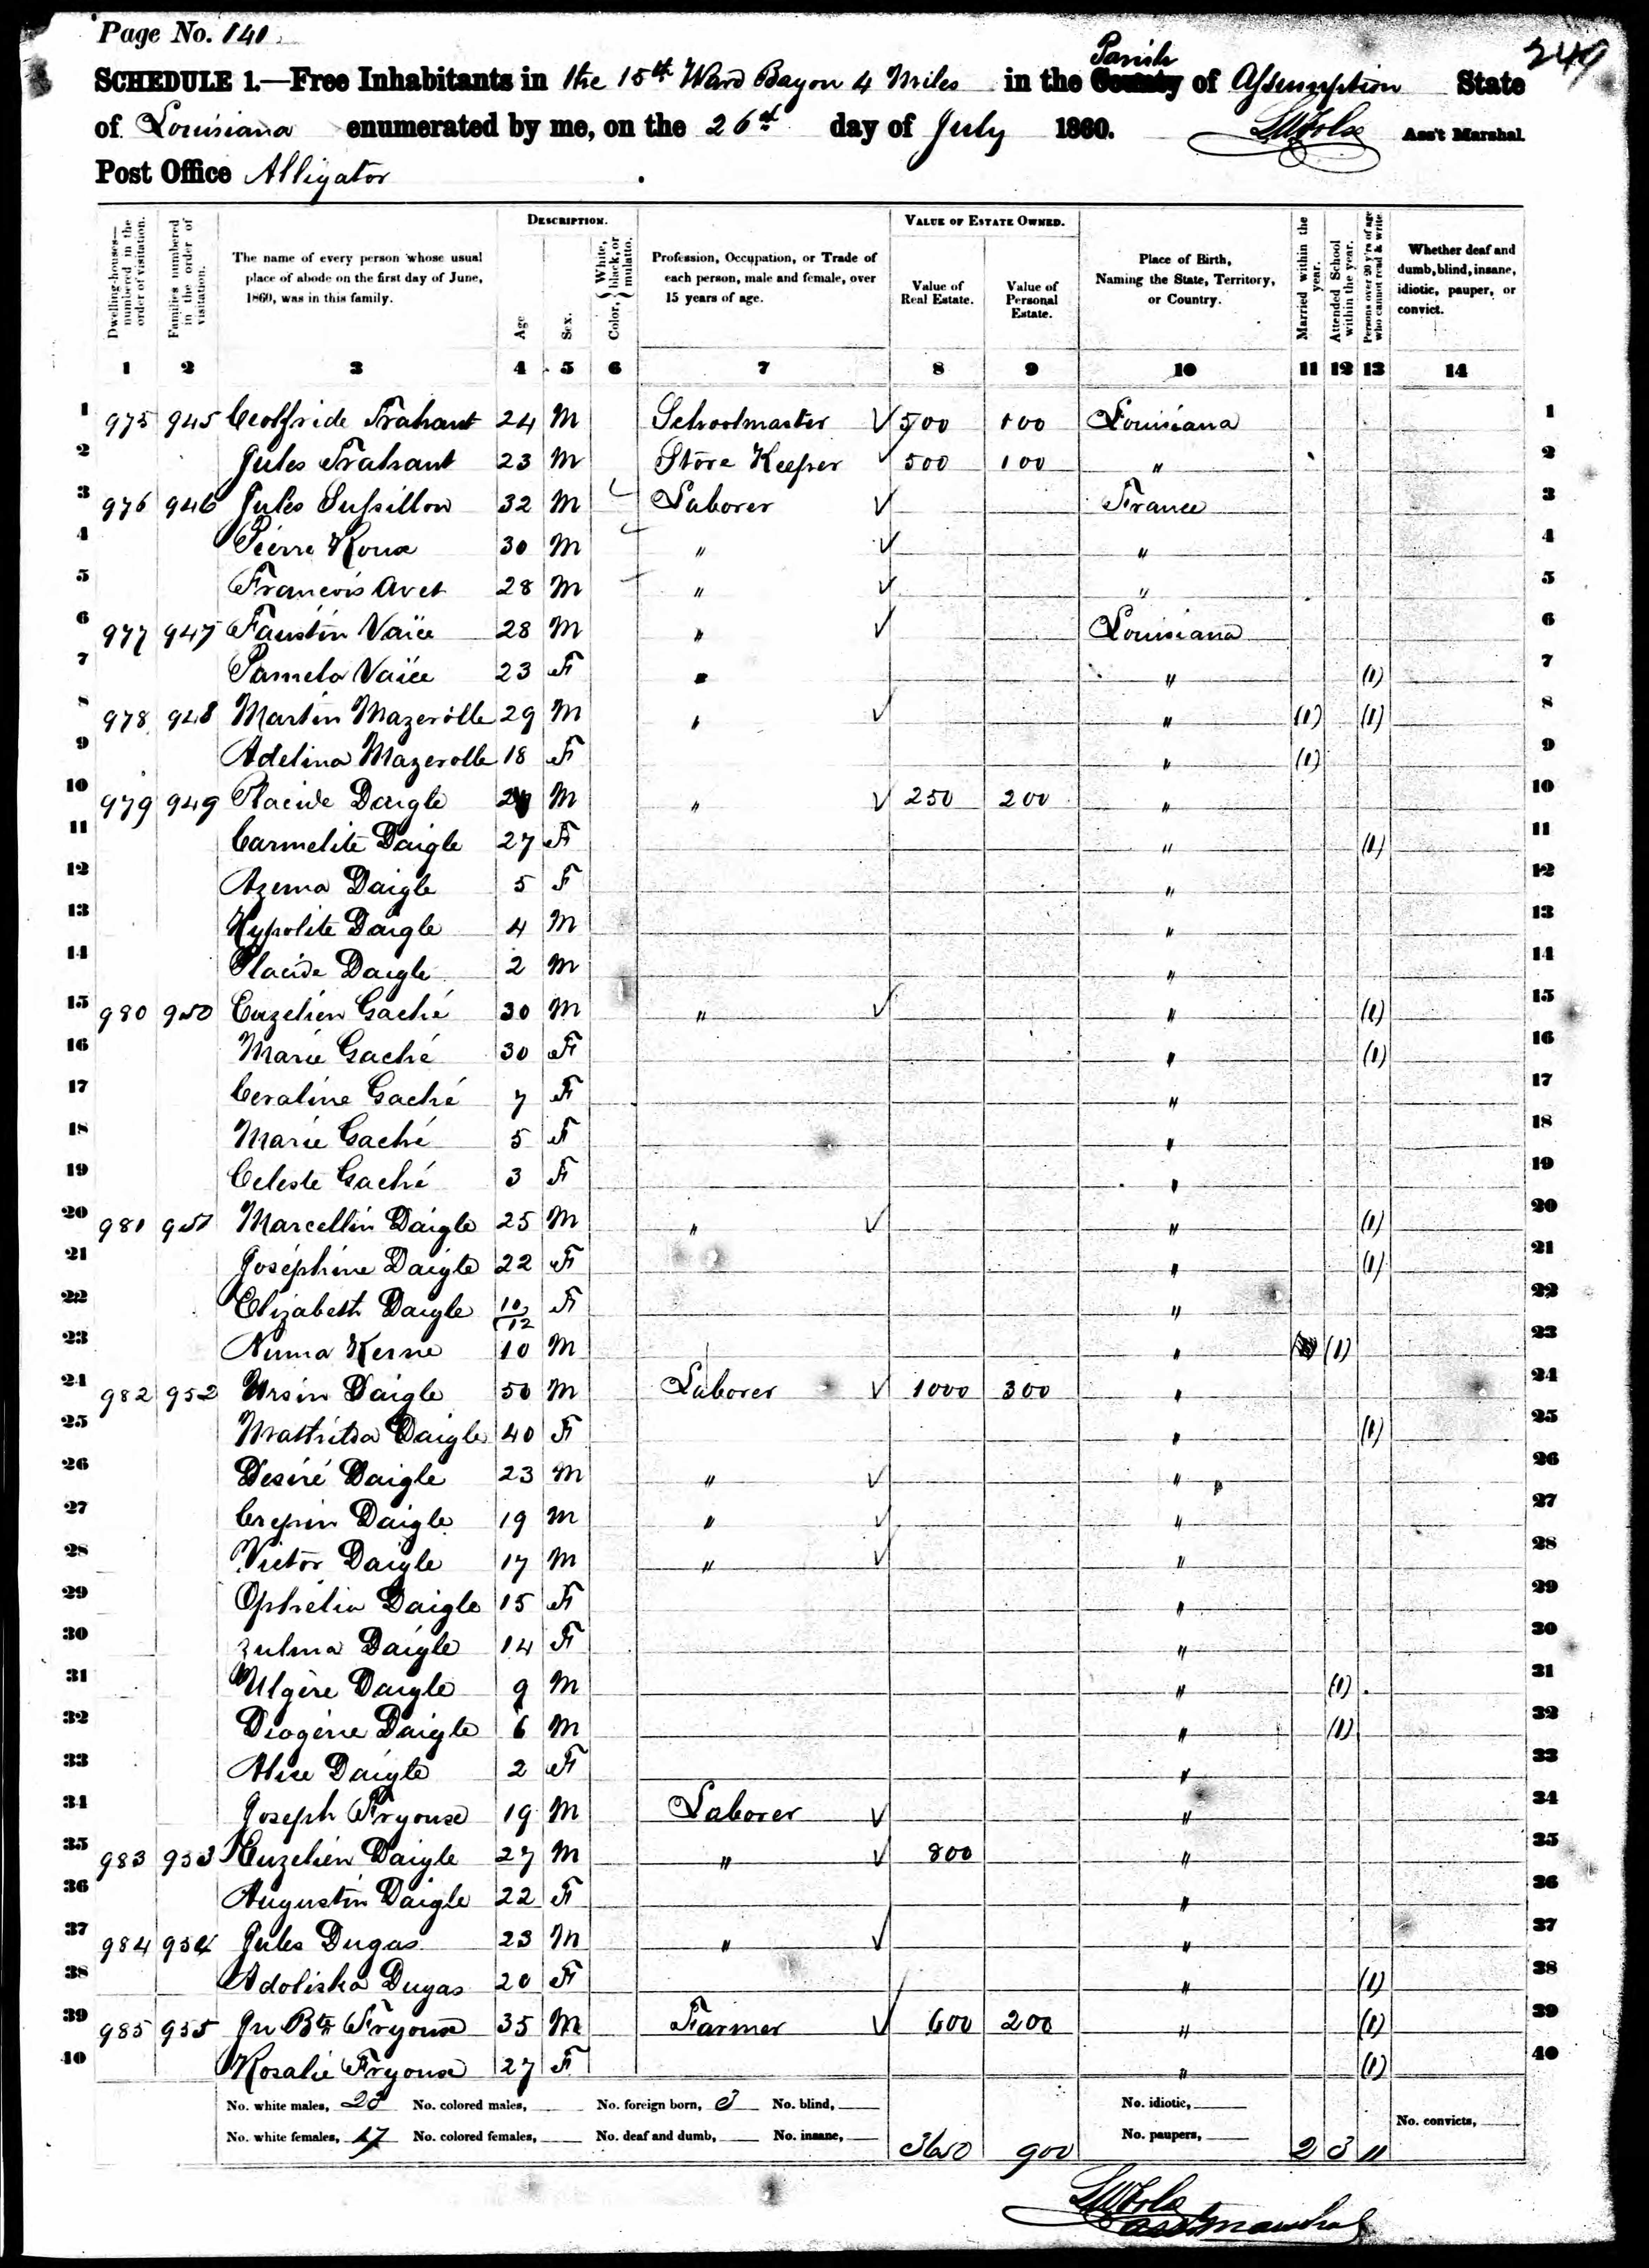 Page No. 141
249
SCHEDULE 1.—Free Inhabitants in the 15th Ward Bayou 4 Miles in the County Parish of Assumption State
of Louisiana enumerated by me, on the 26th day of July 1860. Ass't Marshal.
Post Office Alligator
Dwelling-houses—numbered in the order of visitation.
Families numbered in the order of visitation.
The name of every person whose usual place of abode on the first day of June, 1860, was in this family.
DESCRIPTION.
Age
Sex.
Color, { White, black, or mulatto.
Profession, Occupation, or Trade of each person, male and female, over 15 years of age.
VALUE OF ESTATE OWNED.
Value of Real Estate.
Value of Personal Estate.
Place of Birth, Naming the State, Territory, or Country.
Married within the year.
Attended School within the year.
Persons over 20 y'rs of age who cannot read & write.
Whether deaf and dumb, blind, insane, idiotic, pauper, or convict.
1 2 3 4 5 6 7 8 9 10 11 12 13 14
1 975 945 Trahant 24 M Schoolmaster 500 100 Louisiana 1
2 Jules Trahant 23 M Store Keeper 500 100 " 2
3 976 946 Jules 32 M Laborer France 3
4 Pierre Roux 30 M " " 4
5 Francois Avet 28 M " " 5
6 977 947 Faustin Vaïce 28 M " Louisiana 6
7 Pamela Vaïce 23 F " " (1) 7
8 978 948 Martin Mazerolle 29 M " " (1) (1) 8
9 Adelina Mazerolle 18 F " (1) 9
10 979 949 Placide Daigle M " 250 200 " 10
11 Carmelite Daigle 27 F " (1) 11
12 Azema Daigle 5 F " 12
13 Hypolite Daigle 4 M " 13
14 Placide Daigle 2 M " 14
15 980 950 Euzelien Gaché 30 M " " (1) 15
16 Marie Gaché 30 F " (1) 16
17 Ceraline Gaché 7 F " 17
18 Marie Gaché 5 F " 18
19 Celeste Gaché 3 F " 19
20 981 951 Marcellin Daigle 25 M " " (1) 20
21 Joséphine Daigle 22 F " (1) 21
22 Elizabeth Daigle 10/12 F " 22
23 Numa Kerne 10 M " (1) 23
24 982 952 Ursin Daigle 50 M Laborer 1000 300 " 24
25 Daigle 40 F " (1) 25
26 Desiré Daigle 23 M " " 26
27 Crepin Daigle 19 M " " 27
28 Victor Daigle 17 M " " 28
29 Ophelia Daigle 15 F " 29
30 Zulma Daigle 14 F " 30
31 Ulgère Daigle 9 M " (1) 31
32 Diogène Daigle 6 M " (1) 32
33 Alise Daigle 2 F " 33
34 Joseph Fryoux 19 M Laborer " 34
35 983 953 Euzelien Daigle 27 M " 800 " 35
36 Augustin Daigle 22 F " 36
37 984 954 Jules Dugas 23 M " " 37
38 Adoliska Dugas 20 F " (1) 38
39 985 955 Jn Bte Fryoux 35 M Farmer 600 200 " (1) 39
40 Rosalie Fryoux 27 F " (1) 40
No. white males, 23 No. colored males, No. foreign born, 3 No. blind, No. idiotic,
No. white females, 17 No. colored females, No. deaf and dumb, No. insane, 3650 900 No. paupers, 2 3 11 No. convicts,
asst marshal